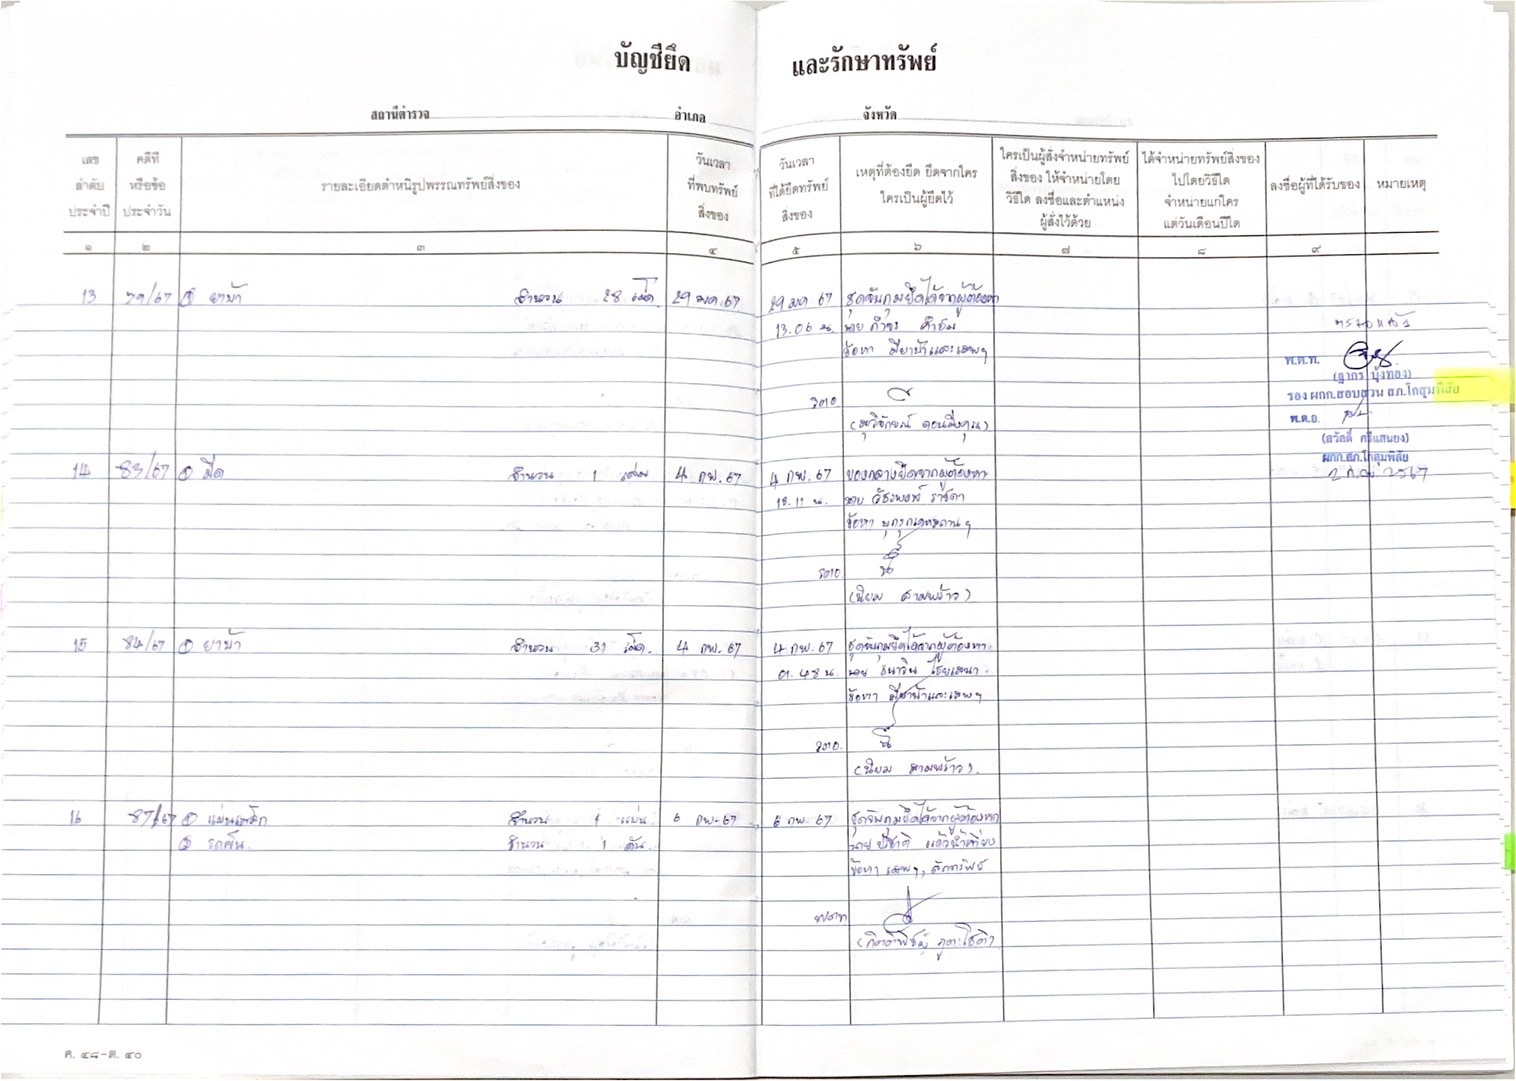 บัญชียึด และรักษาทรัพย์
สถานีตำรวจ อำเภอ จังหวัด
เลขลำดับประจำปี
คดีที่หรือข้อประจำวัน
รายละเอียดตำหนิรูปพรรณทรัพย์สิ่งของ
วันเวลาที่พบทรัพย์สิ่งของ
วันเวลาที่ได้ยึดทรัพย์สิ่งของ
เหตุที่ต้องยึด ยึดจากใคร ใครเป็นผู้ยึดไว้
ใครเป็นผู้สั่งจำหน่ายทรัพย์สิ่งของ ให้จำหน่ายโดยวิธีใด ลงชื่อและตำแหน่งผู้สั่งไว้ด้วย
ได้จำหน่ายทรัพย์สิ่งของไปโดยวิธีใด จำหน่ายแก่ใคร แต่วันเดือนปีใด
ลงชื่อผู้ที่ได้รับของ
หมายเหตุ
๑ ๒ ๓ ๔ ๕ ๖ ๗ ๘ ๙
13 79/67 ① ยาบ้า จำนวน 28 เม็ด 29 มค. 67 29 มค 67 ชุดจับกุมยึดได้จากผู้ต้องหา
13.06 น. นาย
ข้อหา มียาบ้าและเสพฯ
ตรวจแล้ว
พ.ต.ท.
(ฐากร บุ้งทอง)
รอง ผกก.สอบสวน สภ.โกสุมพิสัย
พ.ต.อ.
(สวัสดิ์ ศรีแสนยง)
ผกก.สภ.โกสุมพิสัย
14 83/67 ① มีด จำนวน 1 เล่ม 4 กพ. 67 4 กพ. 67 ของกลางยึดจากผู้ต้องหา
18.11 น. นาย
ข้อหา บุกรุกเคหสถานฯ
(นิยม สามพร้าว)
15 84/67 ① ยาบ้า จำนวน 31 เม็ด. 4 กพ. 67 4 กพ. 67 ชุดจับกุมยึดได้จากผู้ต้องหา
01.48 น. นาย
ข้อหา มียาบ้าและเสพฯ
(นิยม สามพร้าว)
16 87/67 ① แม่นเหล็ก จำนวน 1 แม่น 6 กพ. 67 6 กพ. 67 ชุดจับกุมยึดได้จากผู้ต้องหา
② รถเข็น จำนวน 1 คัน นาย ปรีชาติ แก้วน้ำเที่ยง
ข้อหา เสพฯ, ลักทรัพย์
ค. ๔๘-ต. ๔๐